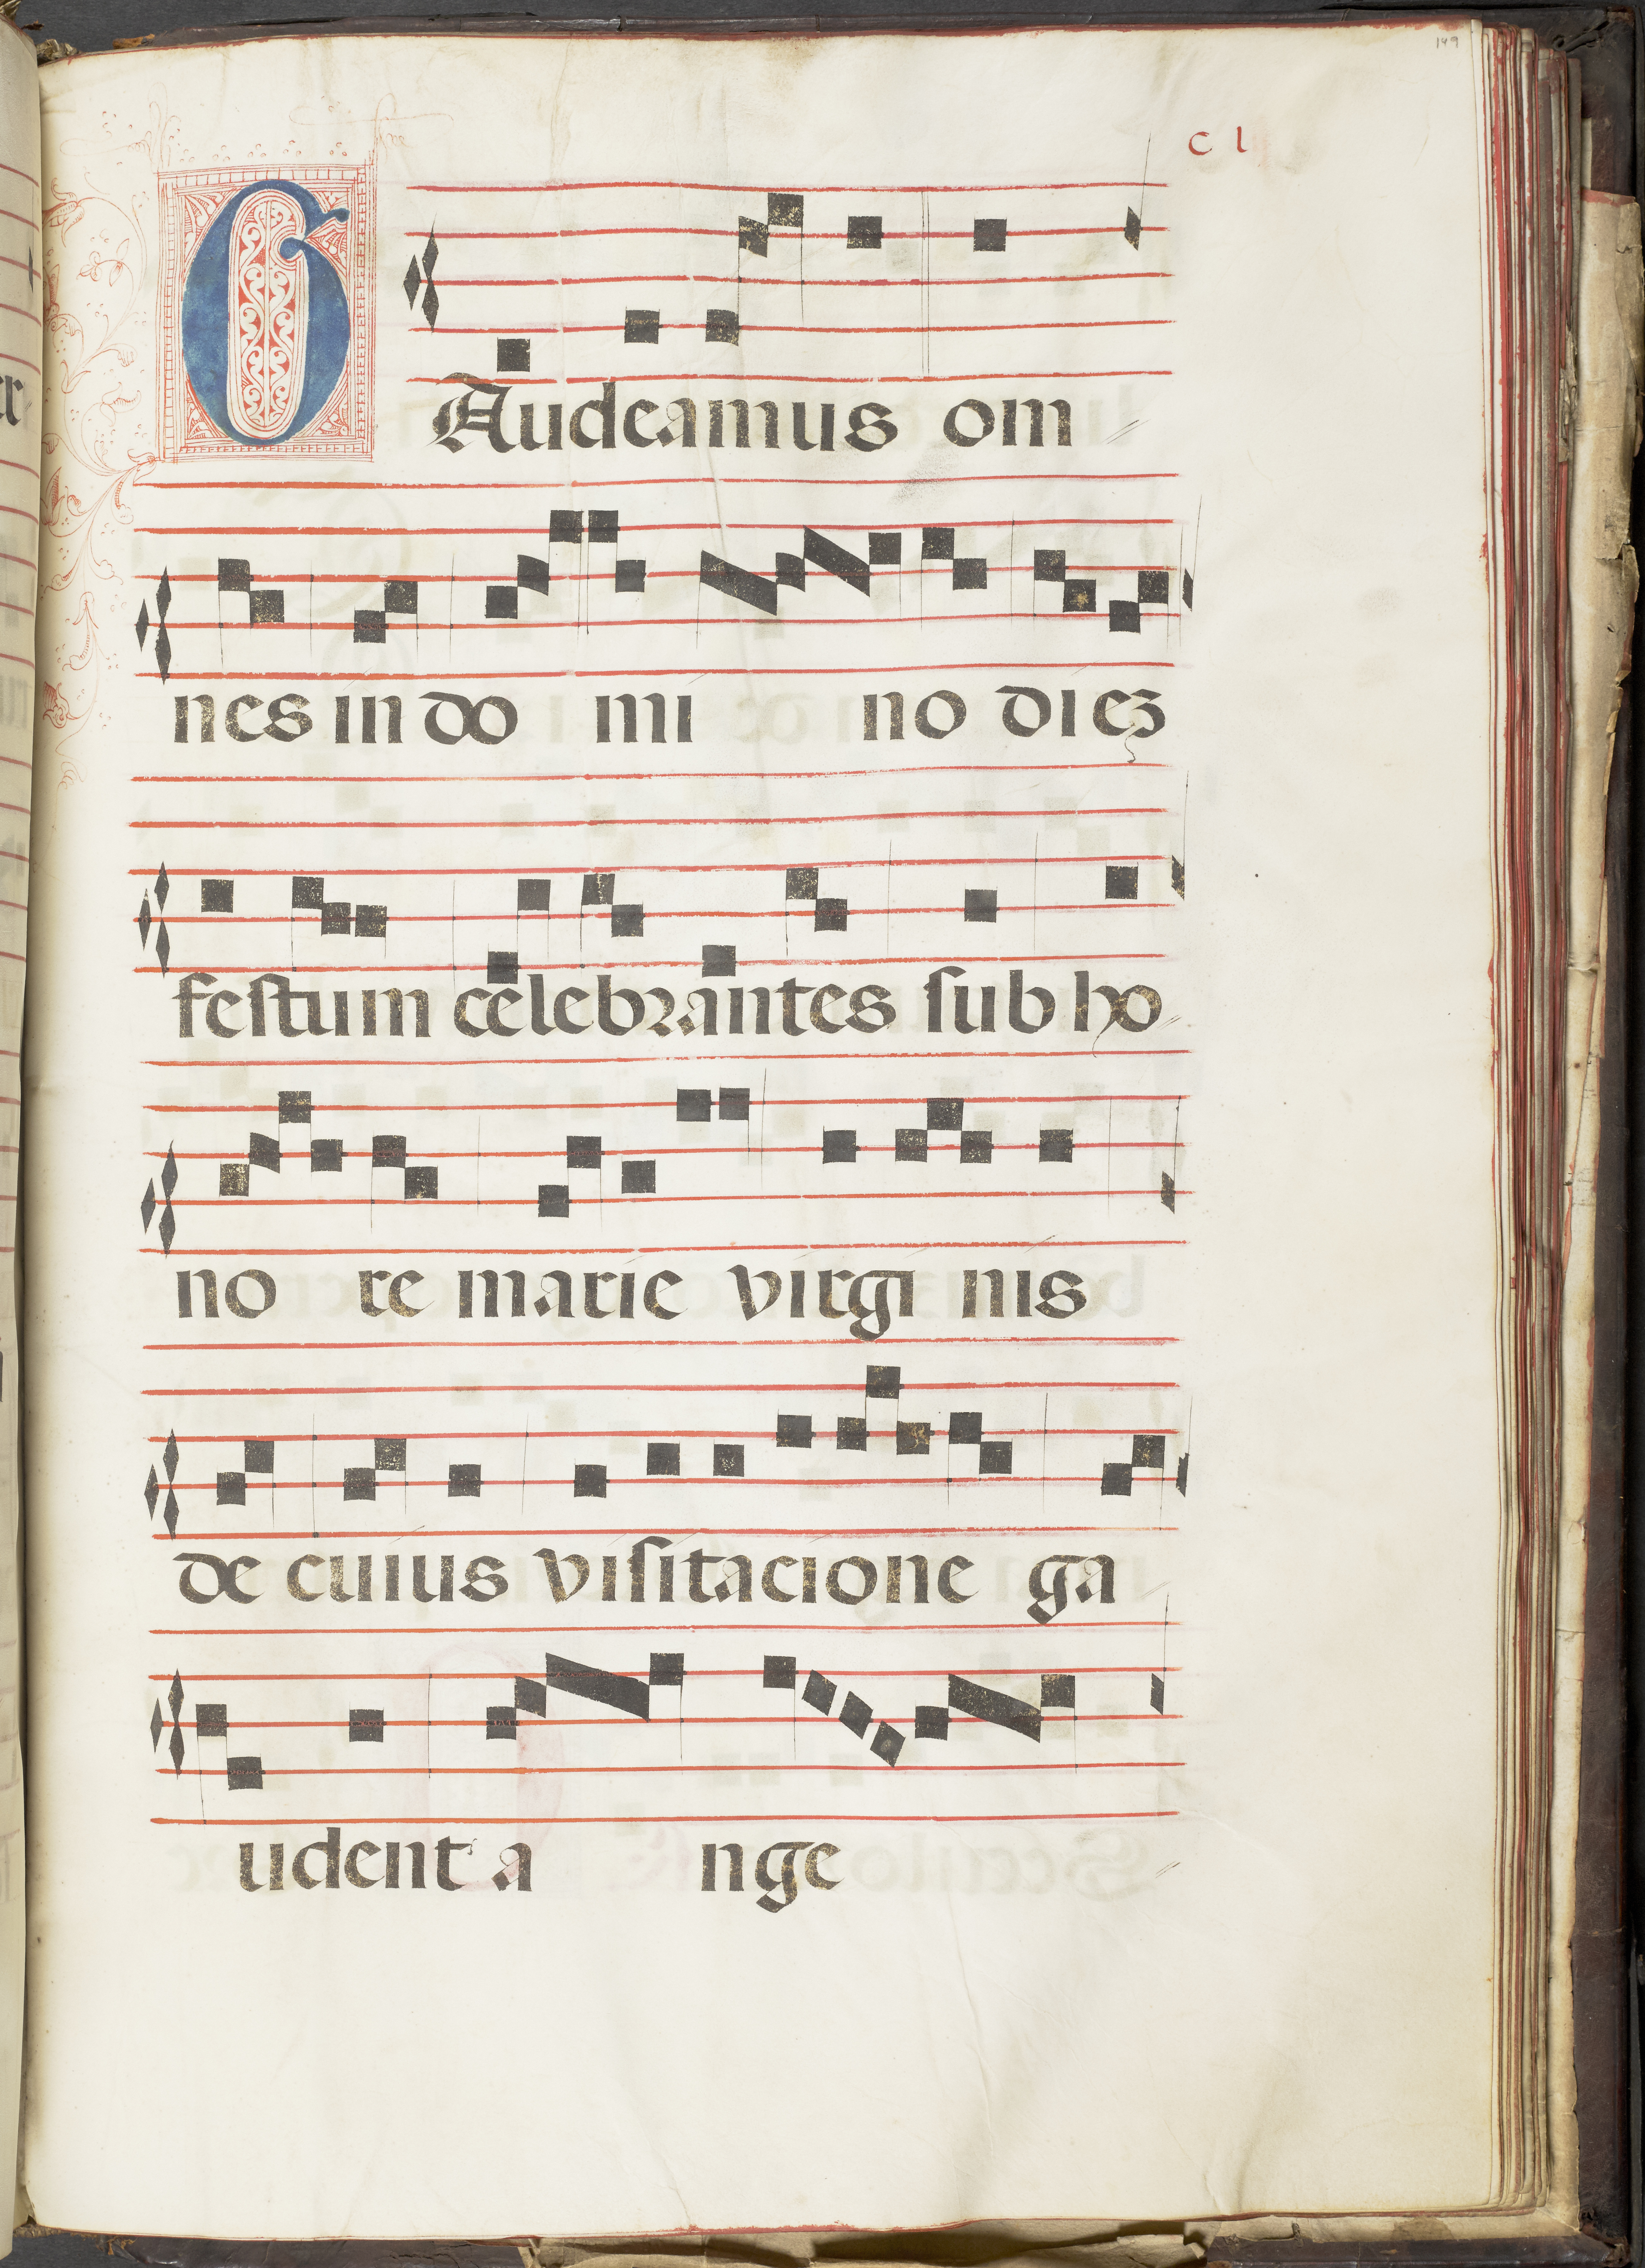 149
c l
GAudeamus om
nes in do mi no diez
festum celebrantes sub ho
no re marie virgi nis
de cuius visitacione ga
udent a nge